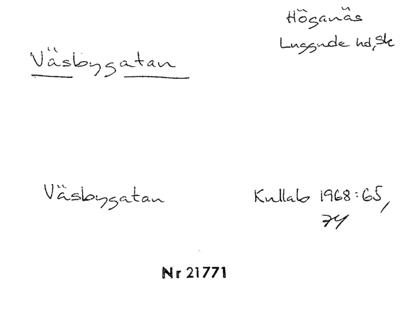 Höganäs
Luggude hd, Sk
Väsbygatan
Väsbygatan
Kullab 1968:65,
74
Nr 21771